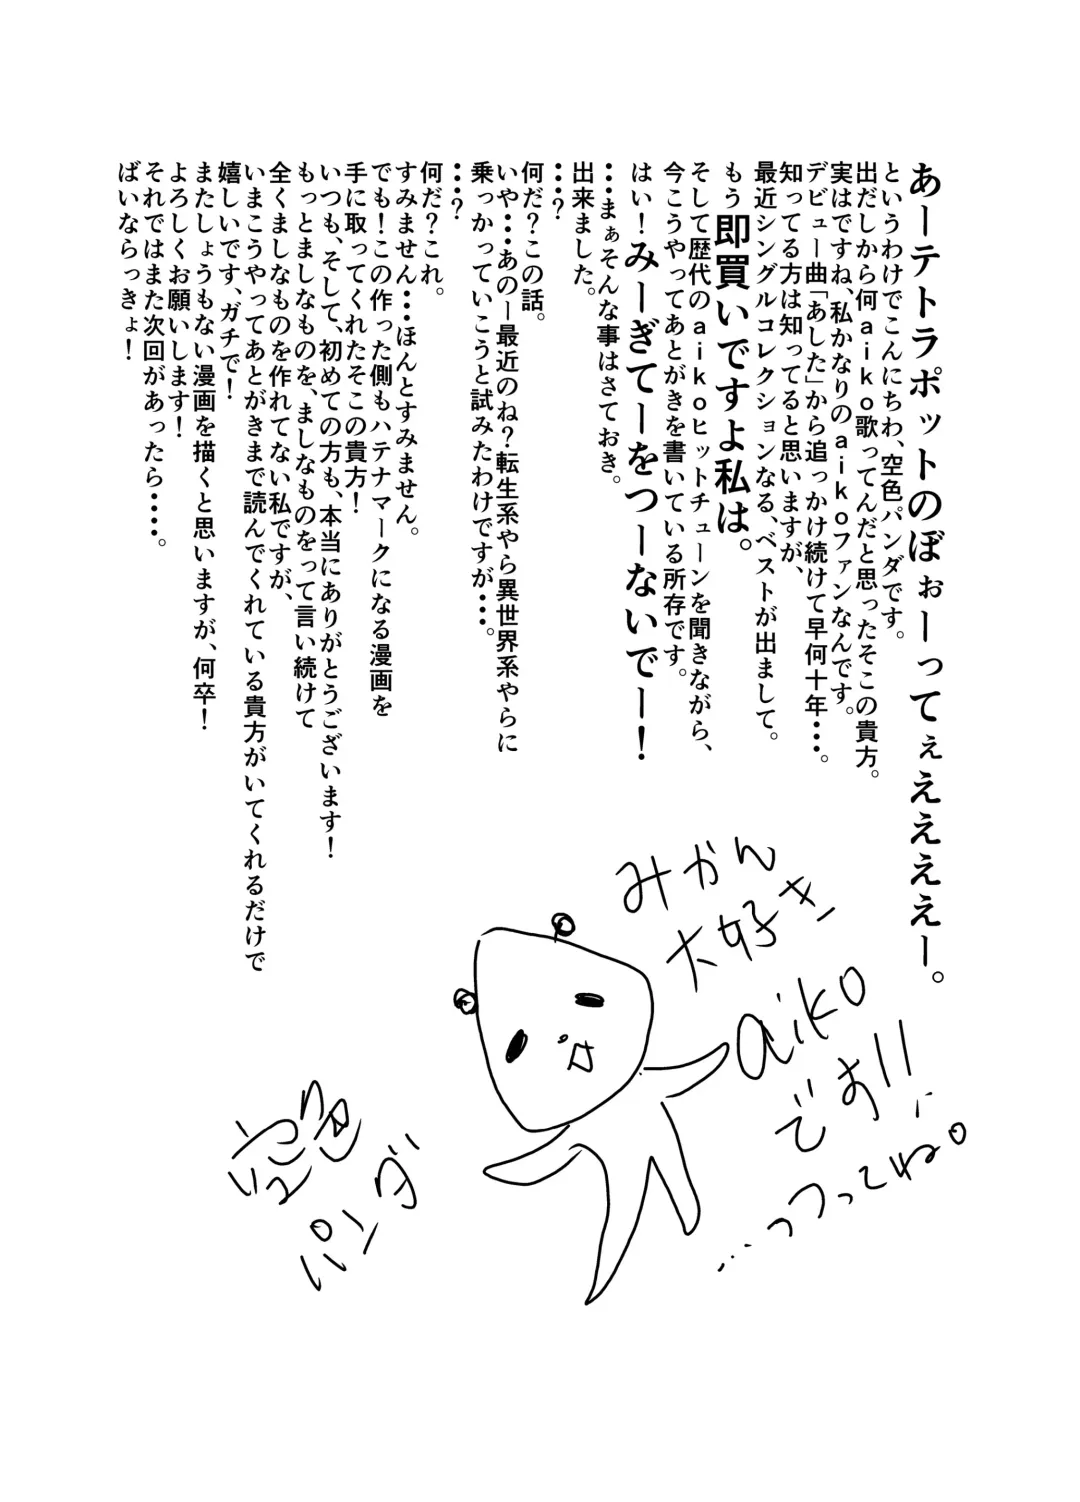 あーテトラポットのぼぉーってぇえええー。
というわけでこんにちわ、空色パンダです。
出だしから何aiko歌ってんだと思ったそこの貴方。
実はですね、私かなりのaikoファンなんです。
デビュー曲「あした」から追っかけ続けて早何十年・・・。
知ってる方は知ってると思いますが、
最近シングルコレクションなる、ベストが出まして。
もう即買いですよ私は。
そして歴代のaikoヒットチューンを聞きながら、
今こうやってあとがきを書いている所存です。
はい!みーぎてーをつーないでー!
・・・まぁそんな事はさておき。
出来ました。
・・・?
何だ?この話。
いや・・・あのー最近のね?転生系やら異世界系やらに
乗っかっていこうと試みたわけですが・・・。
・・・?
何だ?これ。
すみません・・・ほんとすみません。
でも!この作った側もハテナマークになる漫画を
手に取ってくれたそこの貴方!
いつも、そして、初めての方も、本当にありがとうございます!
もっとましなものを、ましなものをって言い続けて
全くましなものを作れてない私ですが、
いまこうやってあとがきまで読んでくれている貴方がいてくれるだけで
嬉しいです、ガチで!
またしょうもない漫画を描くと思いますが、何卒!
よろしくお願いします!
それではまた次回があったら・・・・。
ばいならっきょ!
みかん
大好き
aiko
です!!
…っつってね。
空色
パンダ